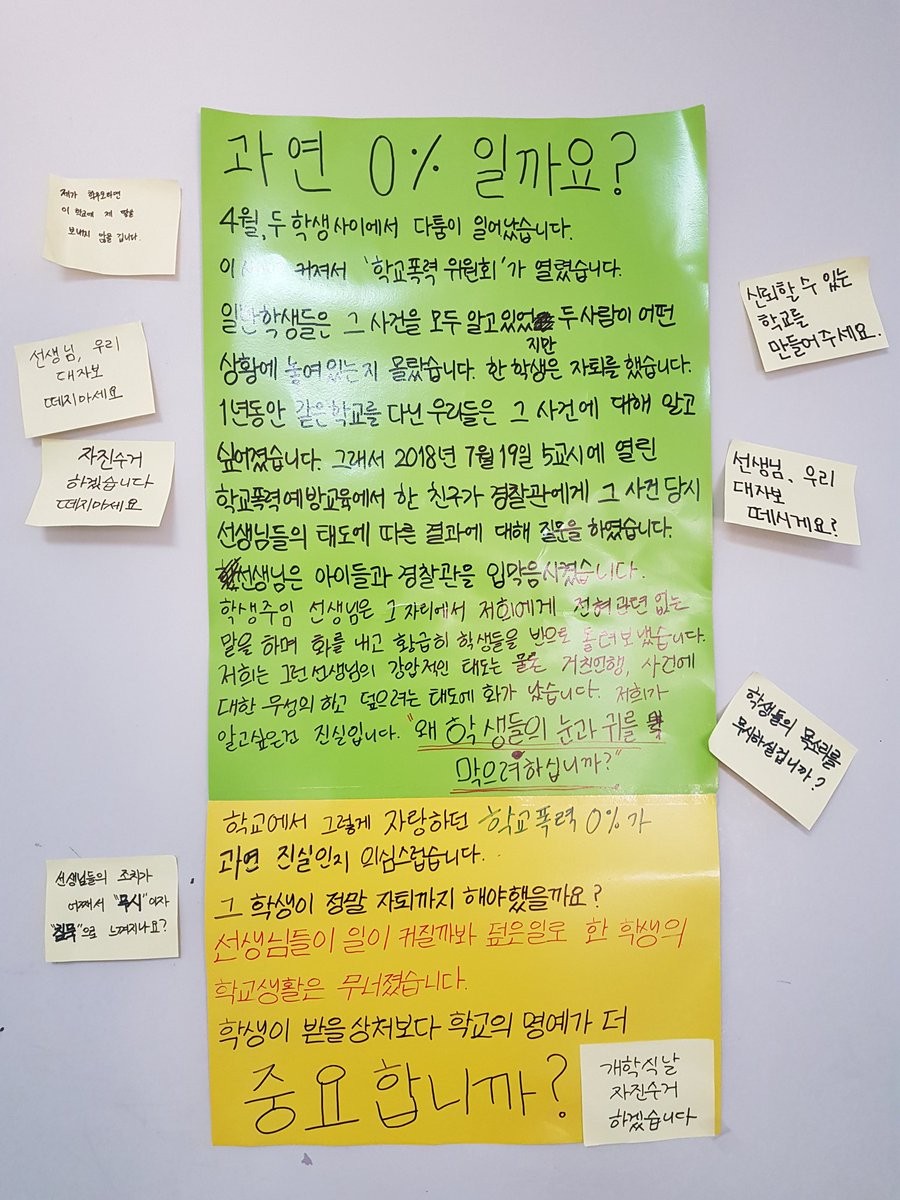 과연 0% 일까요?
4월, 두 학생사이에서 다툼이 일어났습니다.
이 커져서 '학교폭력 위원회'가 열렸습니다.
일반학생들은 그 사건을 모두 알고있었지만 두사람이 어떤
상황에 놓여있는지 몰랐습니다. 한 학생은 자퇴를 했습니다.
1년동안 같은학교를 다닌 우리들은 그 사건에 대해 알고
싶어졌습니다. 그래서 2018년 7월 19일 5교시에 열린
학교폭력예방교육에서 한 친구가 경찰관에게 그 사건 당시
선생님들의 태도에 따른 결과에 대해 질문을 하였습니다.
선생님은 아이들과 경찰관을 입막음시켰습니다.
학생주임 선생님은 그 자리에서 저희에게 전혀 관련 없는
말을 하며 화를 내고 황급히 학생들을 반으로 돌려보냈습니다.
저희는 그런 선생님의 강압적인 태도는 물론 거친언행, 사건에
대한 무성의하고 덮으려는 태도에 화가 났습니다. 저희가
알고싶은건 진실입니다. "왜 학생들의 눈과 귀를
막으려하십니까?"
학교에서 그렇게 자랑하던 학교폭력 0%가
과연 진실인지 의심스럽습니다.
그 학생이 정말 자퇴까지 해야했을까요?
선생님들이 일이 커질까봐 덮은일로 한 학생의
학교생활은 무너졌습니다.
학생이 받을상처보다 학교의 명예가 더
중요합니까?
개학식날
자진수거
하겠습니다
제가 학부모라면
이 학교에 제 딸을
보내지 않을 겁니다.
선생님, 우리
대자보
떼지마세요
자진수거
하겠습니다
떼지마세요
선생님들의 조치가
어째서 "무시"이자
"침묵"으로 느껴지나요?
신뢰할 수 있는
학교를
만들어주세요.
선생님, 우리
대자보
떼시게요?
학생들의 목소리를
무시하실겁니까?